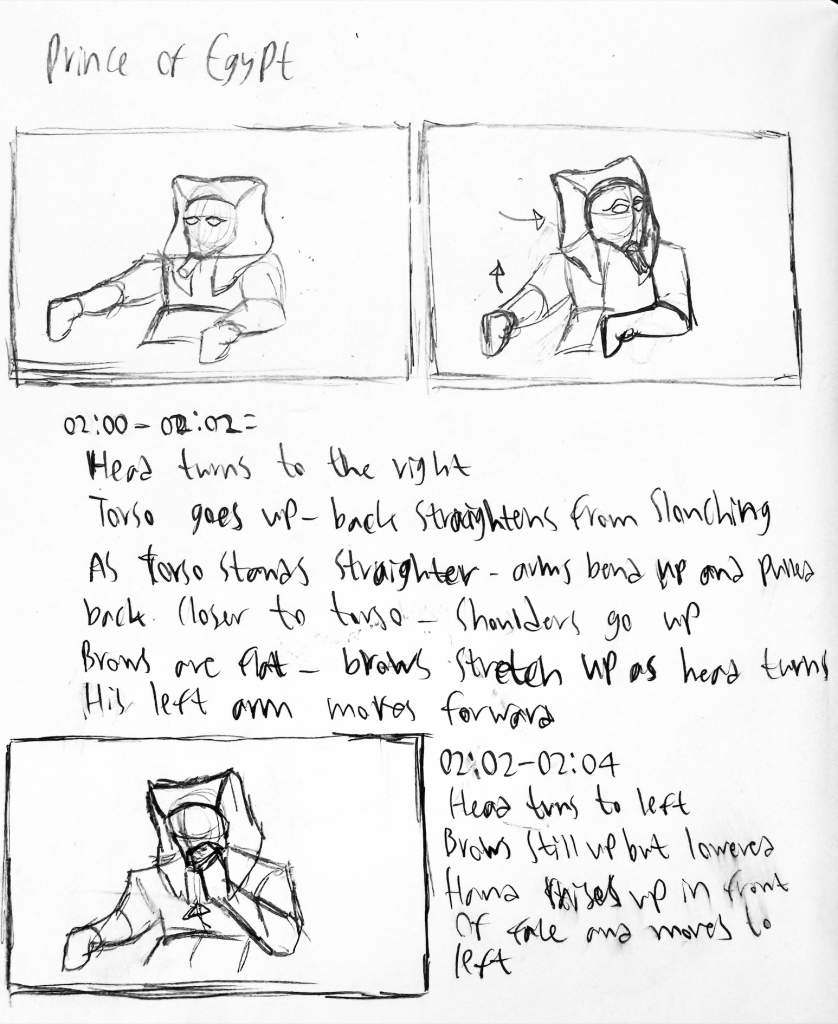 Prince of Egypt
02:00-02:02=
Head turns to the right
Torso goes up - back straightens from Slouching
As torso stands straighter - arms bend up and pulled
back closer to torso - shoulders go up
Brows are flat - brows stretch up as head turns
His left arm moves forward
02:02-02:04
Head turns to left
Brows still up but lowered
Hand raises up in front
Of face and moves to
left